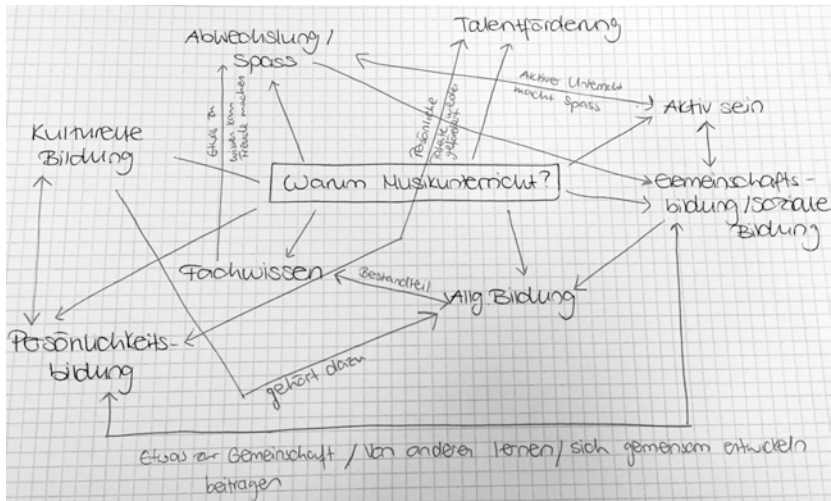 Abwechslung/
Spass
Talentförderung
Aktiver Unterricht
macht Spass
Aktiv sein
Kulturelle
Bildung
Etwas zu
wissen kann
Freude machen
Persönliche
Talente werden
gefördert
Warum Musikunterricht?
Gemeinschafts-
bildung/soziale
Bildung
Fachwissen
Bestandteil
Allg. Bildung
Persönlichkeits-
bildung
gehört dazu
Etwas zur Gemeinschaft / Von anderen lernen/ sich gemeinsam entwickeln
beitragen